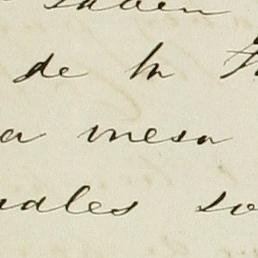 saben
de la
a mesa
uales so